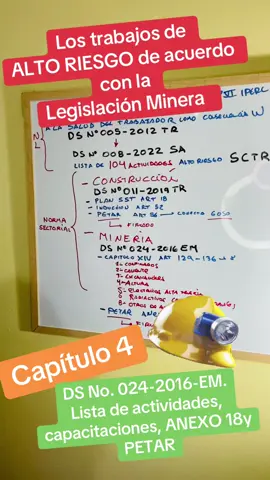 Los trabajos de
ALTO RIESGO de acuerdo
con la
Legislación Minera
A LA SALUD DEL TRABAJADOR COMO CONSECUENCIA
DS Nº 005-2012 TR
DS Nº 008-2022 SA
LISTA DE 104 ACTIVIDADES ALTO RIESGO SCTR
- CONSTRUCCIÓN
DS Nº 011-2019 TR
- PLAN SST ART 18
- INDUCCIÓN ART 32
- PETAR ART
FIRMADO
NORMA
SECTORIAL
- MINERIA
DS Nº 024-2016 EM
- CAPITULO XIV ART 129-136
1- CONFINADOS
2- CALIENTE
3- EXCAVACIONES
4- ALTURA
- PETAR
Capítulo 4
DS No. 024-2016-EM.
Lista de actividades,
capacitaciones, ANEXO 18y
PETAR